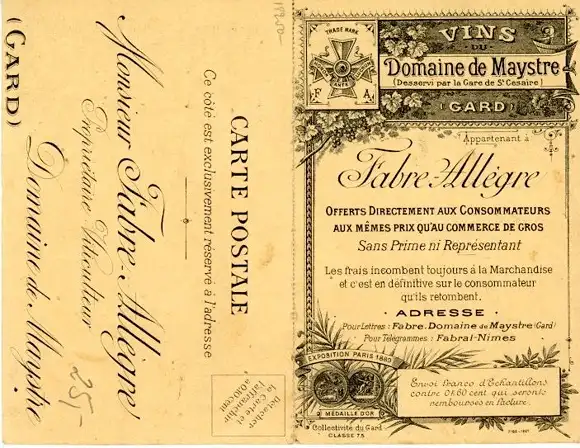 CARTE POSTALE
Ce côté est exclusivement réservé à l'adresse
Monsieur Fabre-Allègre
Propriétaire Viticulteur
Domaine de Maystre
(GARD)
25,-
Détacher
la Carte et
l'affranchir
TRADE MARK
F A
VINS
DU
Domaine de Maystre
(Desservi par la Gare de St Césaire)
(GARD)
Appartenant à
Fabre Allègre
OFFERTS DIRECTEMENT AUX CONSOMMATEURS
AUX MÊMES PRIX QU'AU COMMERCE DE GROS
Sans Prime ni Représentant
Les frais incombent toujours à la Marchandise
et c'est en définitive sur le consommateur
qu'ils retombent.
ADRESSE
Pour Lettres: Fabre. Domaine de Maystre (Gard)
Pour Télégrammes: Fabral-Nimes
EXPOSITION PARIS 1889
MÉDAILLE D'OR
Collectivité du Gard
CLASSE 73
Envoi franco d'Echantillons
contre 0f.60 cent qui seront
remboursés en facture.